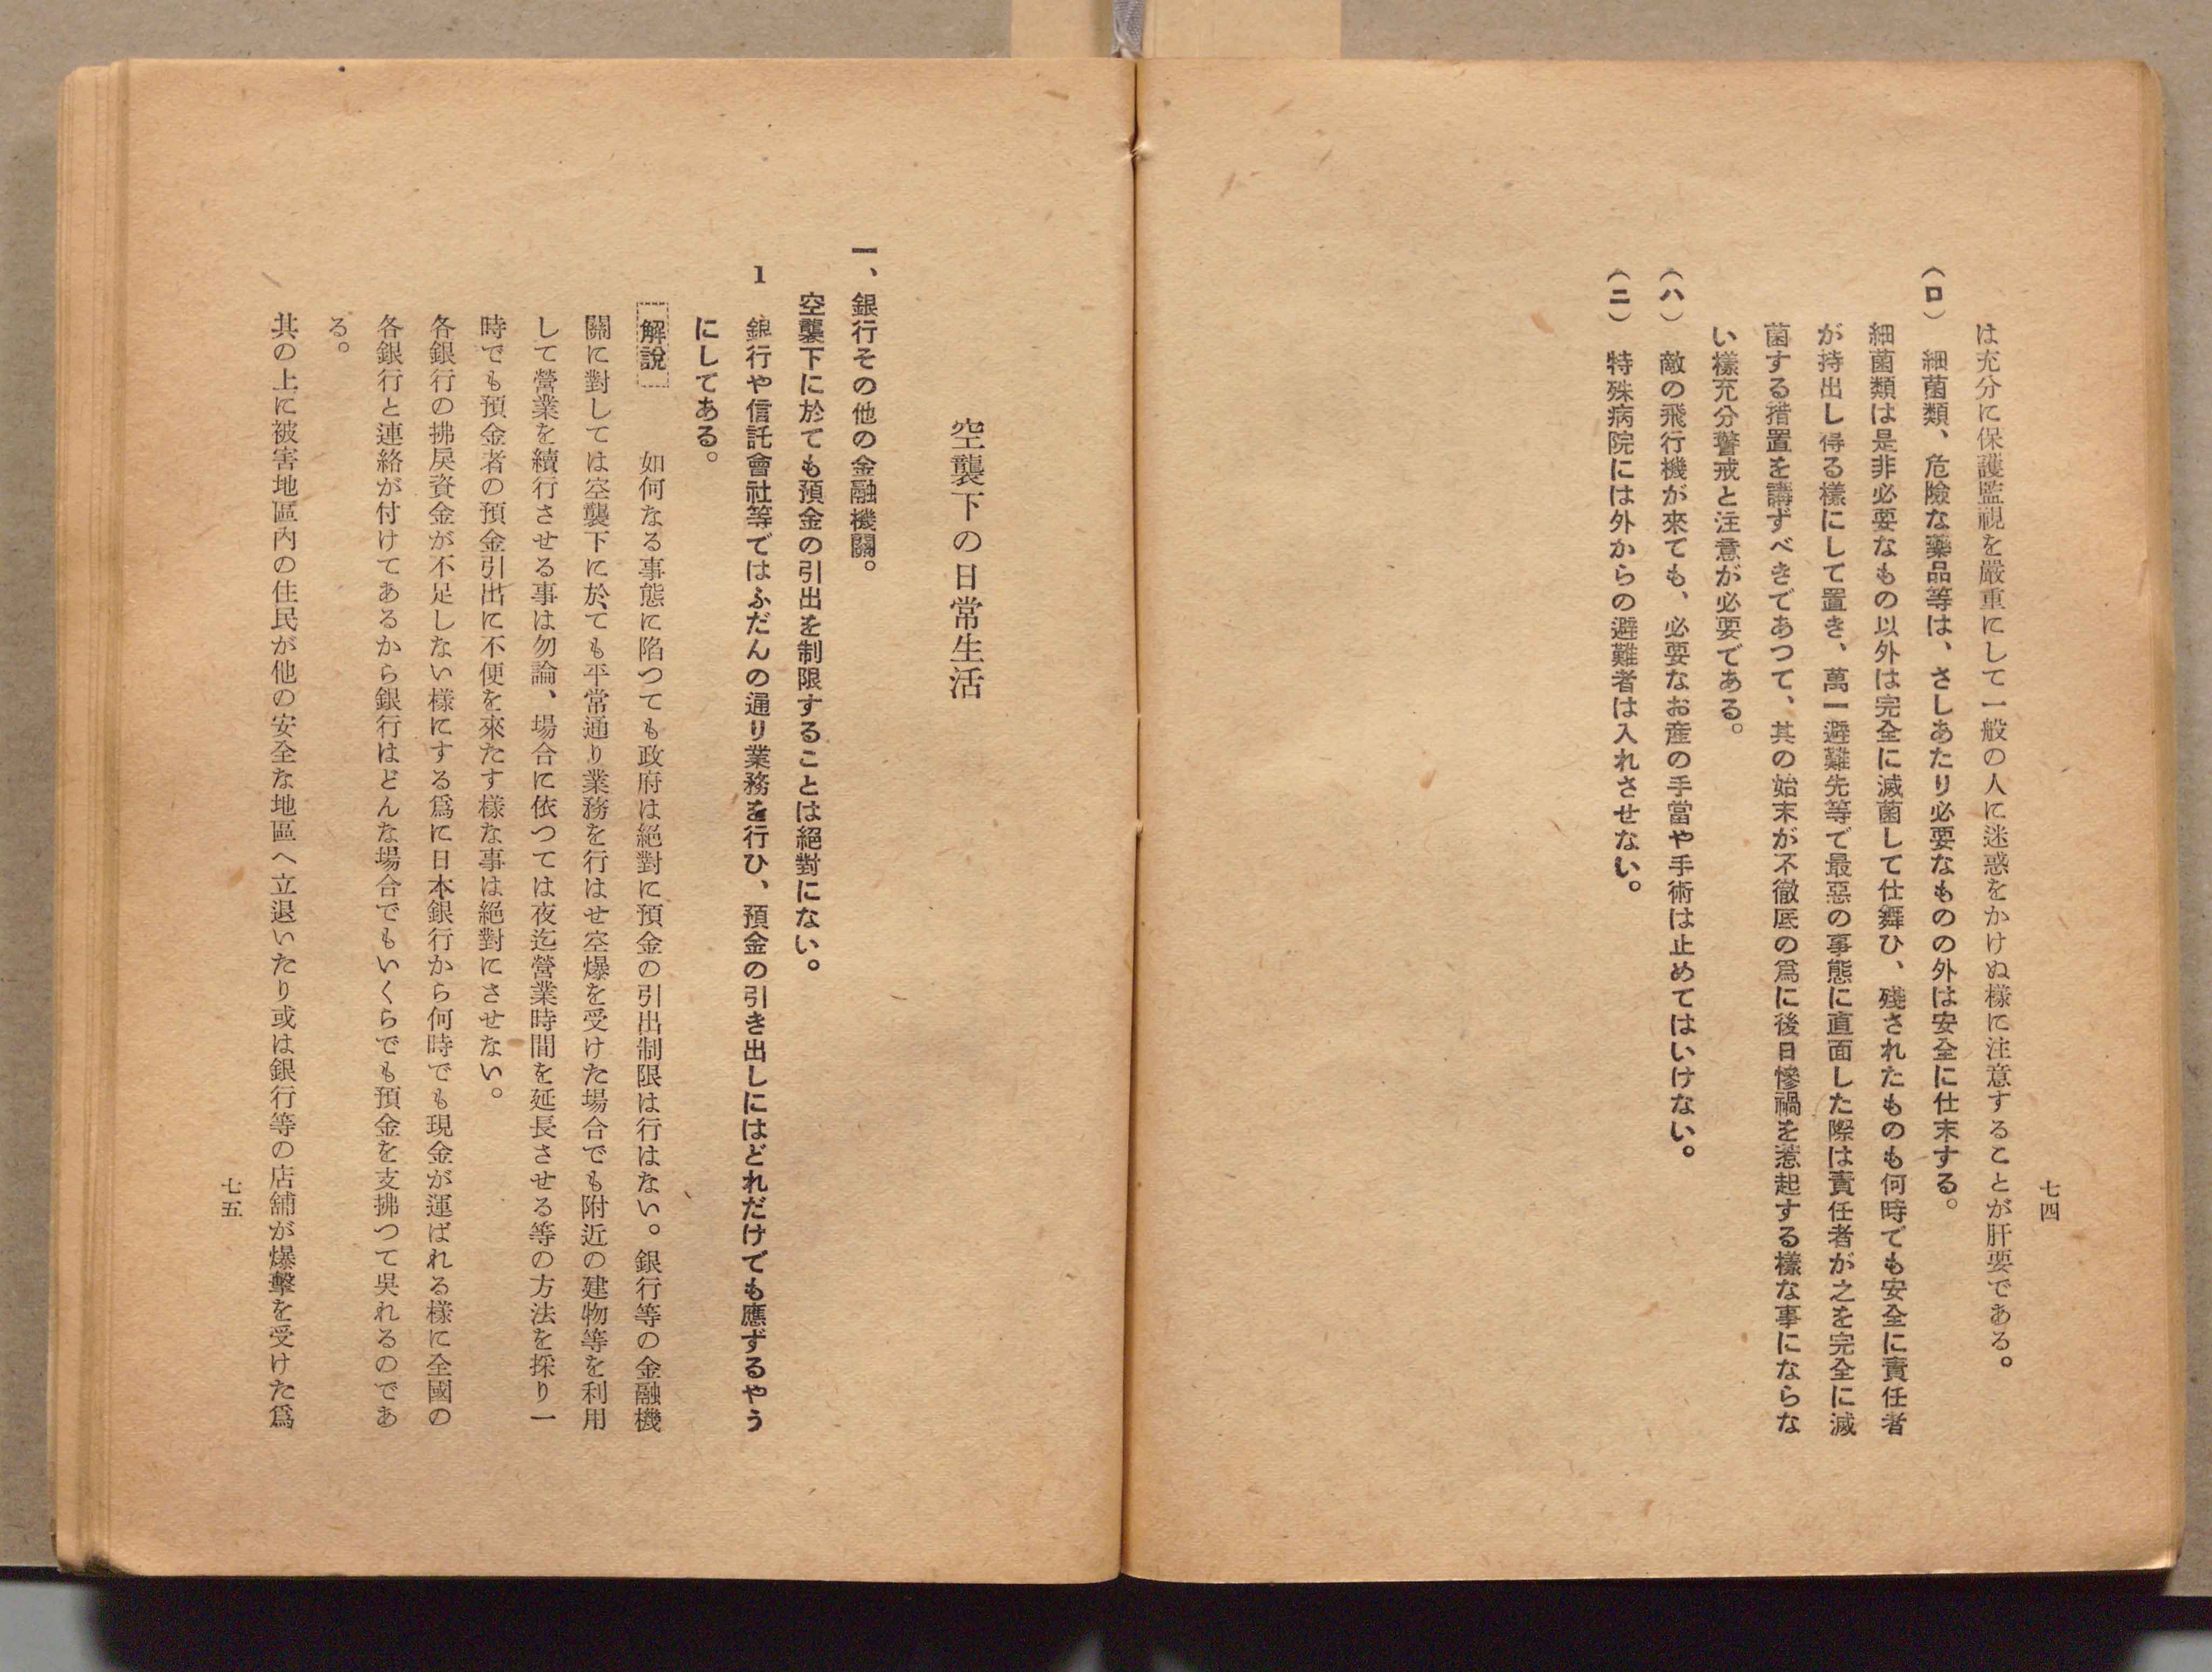 七四
は充分に保護監視を嚴重にして一般の人に迷惑をかけぬ樣に注意することが肝要である。
（ロ）　細菌類、危險な藥品等は、さしあたり必要なものの外は安全に仕末する。
細菌類は是非必要なもの以外は完全に滅菌して仕舞ひ、殘されたものも何時でも安全に責任者
が持出し得る樣にして置き、萬一避難先等で最惡の事態に直面した際は責任者が之を完全に滅
菌する措置を講ずべきであつて、其の始末が不徹底の爲に後日慘禍を惹起する樣な事にならな
い樣充分警戒と注意が必要である。
（ハ）　敵の飛行機が來ても、必要なお産の手當や手術は止めてはいけない。
（ニ）　特殊病院には外からの避難者は入れさせない。
空襲下の日常生活
一、銀行その他の金融機關。
空襲下に於ても預金の引出を制限することは絕對にない。
1　銀行や信託會社等ではふだんの通り業務を行ひ、預金の引き出しにはどれだけでも應ずるやう
にしてある。
解說　如何なる事態に陷つても政府は絕對に預金の引出制限は行はない。銀行等の金融機
關に對しては空襲下に於ても平常通り業務を行はせ空爆を受けた場合でも附近の建物等を利用
して營業を續行させる事は勿論、場合に依つては夜迄營業時間を延長させる等の方法を採り一
時でも預金者の預金引出に不便を來たす樣な事は絕對にさせない。
各銀行の拂戾資金が不足しない樣にする爲に日本銀行から何時でも現金が運ばれる樣に全國の
各銀行と連絡が付けてあるから銀行はどんな場合でもいくらでも預金を支拂つて吳れるのであ
る。
其の上に被害地區內の住民が他の安全な地區へ立退いたり或は銀行等の店舖が爆擊を受けた爲
七五